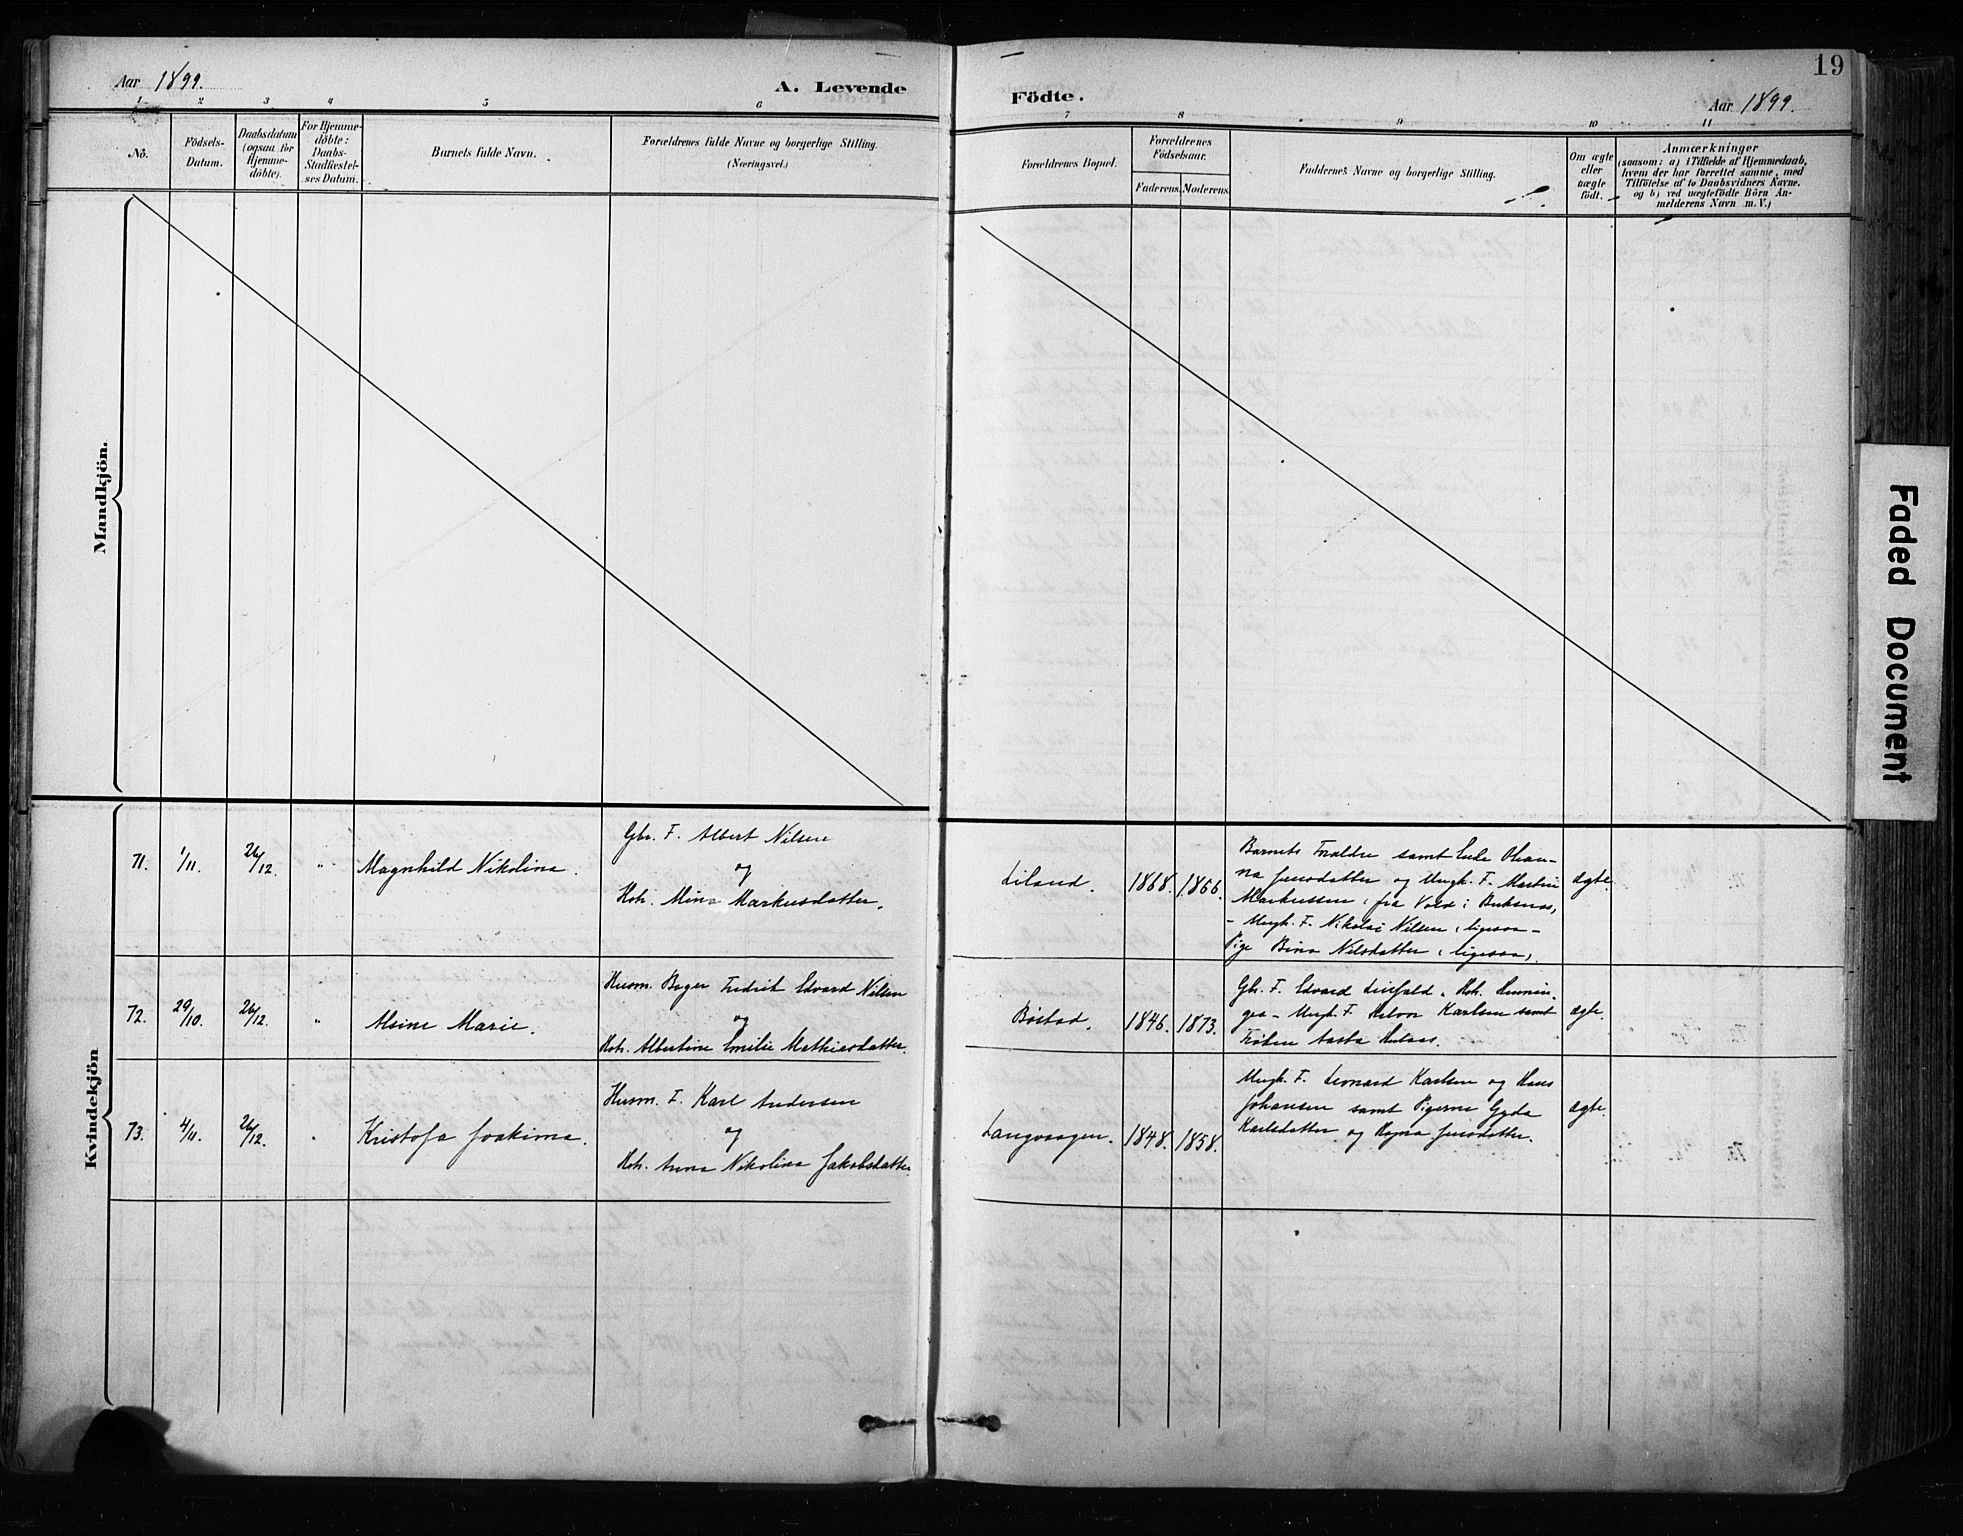 19
Aar 1899.
A. Levende
Födte.
Aar 1899.
1 2 3 4 5 6
7 8 9 10 11
No.
Födsels-
Datum.
Daabsdatum
(ogsaa for
Hjemme-
döbte).
For Hjemme-
döbte:
Daabs-
Stadfæstel-
ses Datum.
Barnets fulde Navn.
Forældrenes fulde Navne og borgerlige Stilling.
(Næringsvei.)
Forældrenes Bopæl.
Forældrenes
Födselsaar.
Faderens. Moderens.
Faddernes Navne og borgerlige Stilling.
Om ægte
eller
uægte
födt.
Anmærkninger
(saasom: a) i Tilfælde af Hjemmedaab,
hvem der har forrettet samme, med
Tilföielse af to Daabsvidners Navne.
og b) ved uægtefödte Börn An-
melderens Navn m. V.)
Mandkjön.
Kvindekjön
71. 1/11. 26/12. " Magnhild Nikolina.
Gbr. F. Albert Nilsen
og
Hst. Mina Markusdatter.
Liland. 1868. 1866.
Barnets Forældre samt Enke Ohan-
na Jensdatter og Ungk. F. Martin
Markussen, fra Vold i Buksnes,
- Ungk. F. Nikolai Nilsen, ligesaa -
Pige Bina Nilsdatter, ligesaa.
ægte.
72. 29/10. 26/12. " Alsine Marie.
Husm. Bager Fredrik Edvard Nilsen
og
Hst. Albertine Emilie Mathiasdatter.
Böstad. 1846. 1873.
Gbr. F. Edvard Hst.
- Ungk. F. Halvor Karlsen samt
Frøken Aasta
ægte.
73. 4/11. 26/12. " Kristofa Joakima.
Husm. F. Karl Andersen
og
Hst. Anna Nikolina Jakobsdatter.
Langvaagen. 1848. 1858.
Ungk. F. Leonard Karlsen og Hans
Johansen samt Pigerne Gyda
Karlsdatter og Hagna Jensdatter.
ægte.
Faded Document